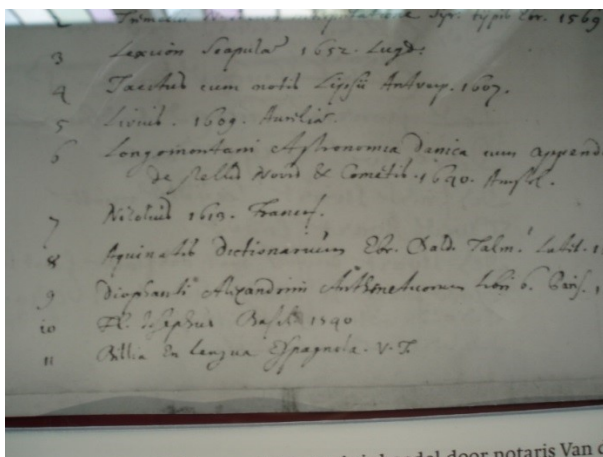 2 Interpretatione Syr. typis Ebr. 1569
3 Lexicon Scapulae 1652. Lugd.
4 Tacitus cum notis Lipsii Antverp. 1607.
5 Livius. 1609. Aureliae.
6 Longomontani Astronomia Danica cum append
de stellis Novis & Cometis. 1640. Amst.
7 1613. Francof.
8 Aquinatis Dictionarium Ebr. Cald. Talm.
9 Diophanti Alexandrini Arithmeticorum libri 6. Paris.
10 Fl. Josephus Basil. 1540
11 Biblia En Lengua Espagnola. V. T.
door notaris Van